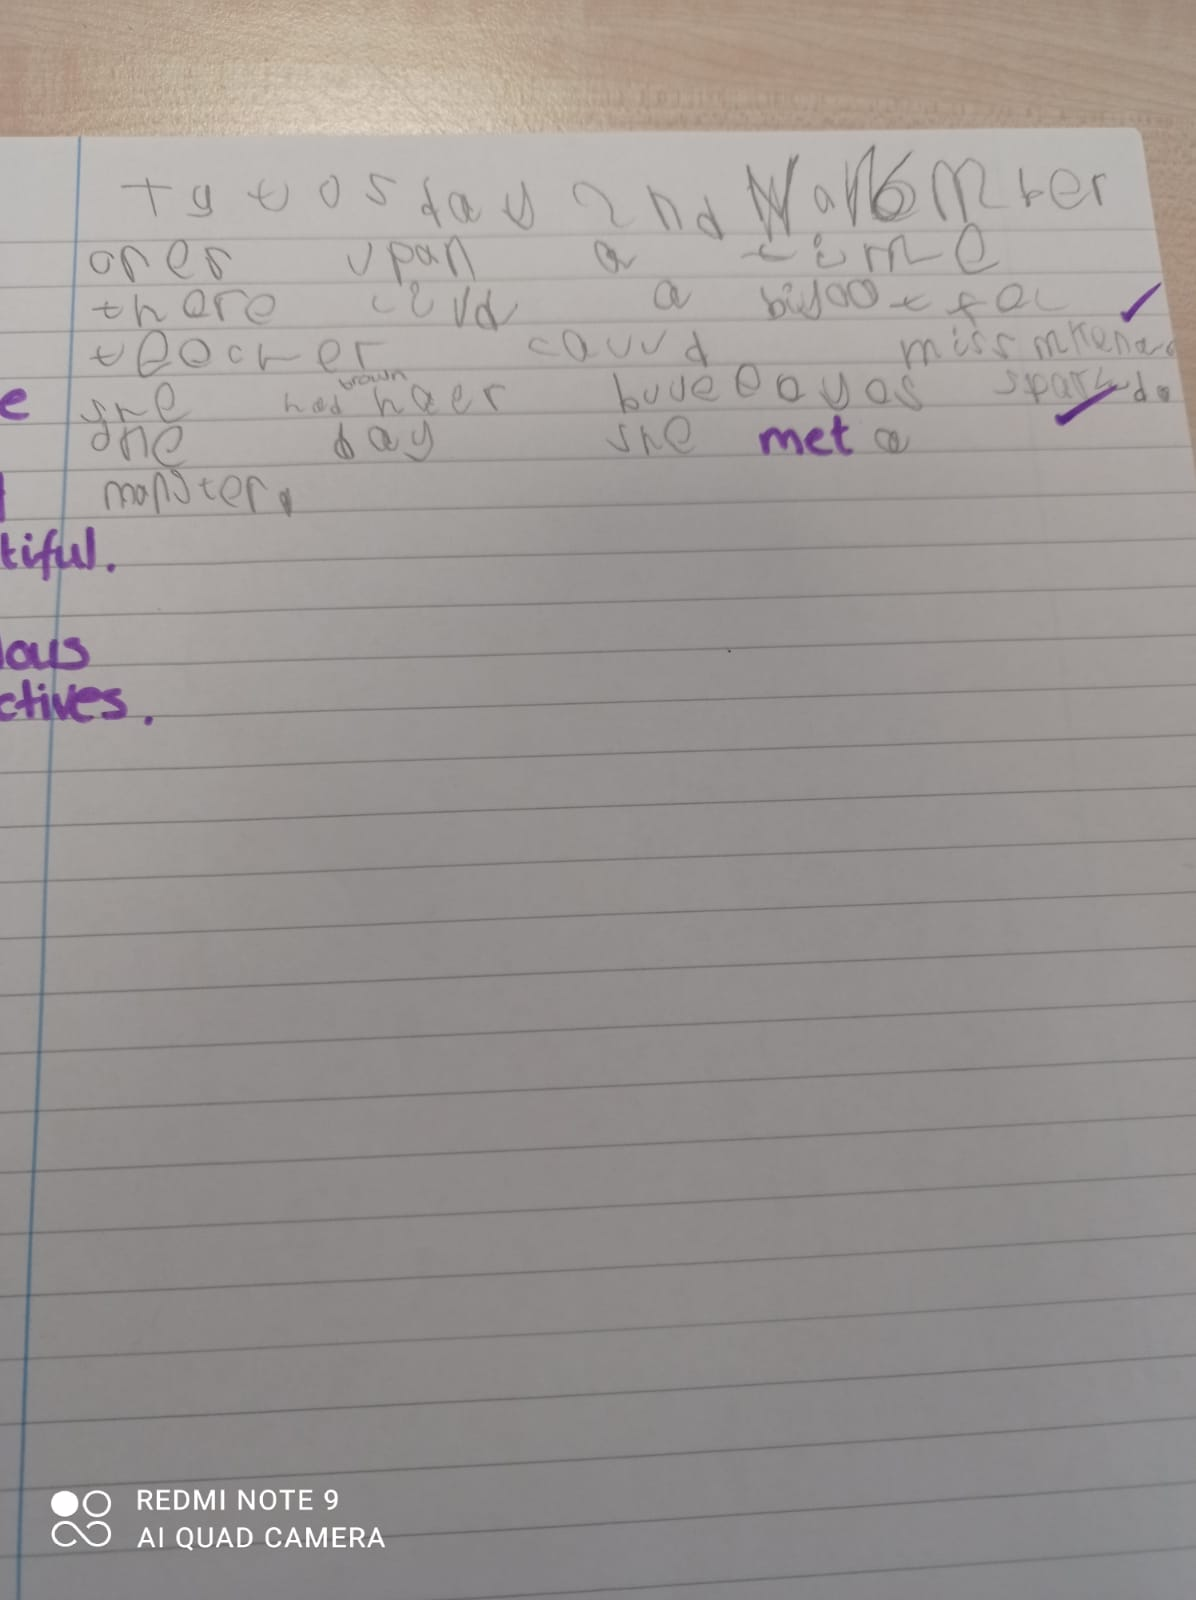 tyuosday 2nd Navomber
ones upan a time
there livd a biyootfol
teocher cauvd miss mkena
brown
e she had haer buue eayas sparkd.
one day she met a
monster.
tiful.
lous
ctives.
REDMI NOTE 9
AI QUAD CAMERA